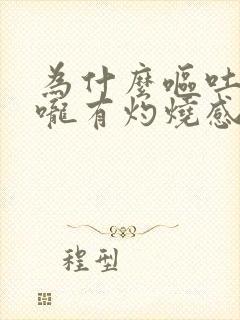 為什麼嘔吐
嚨有灼燒感
程型